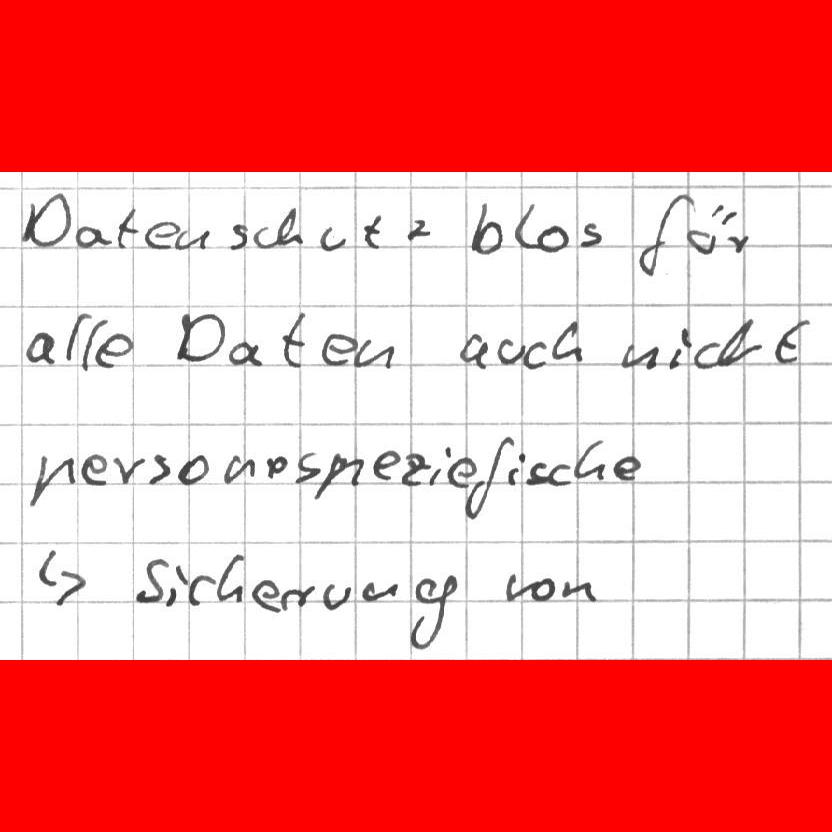 Datenschutz blos für
alle Daten auch nicht
personenspeziefische
↳ Sicherung von